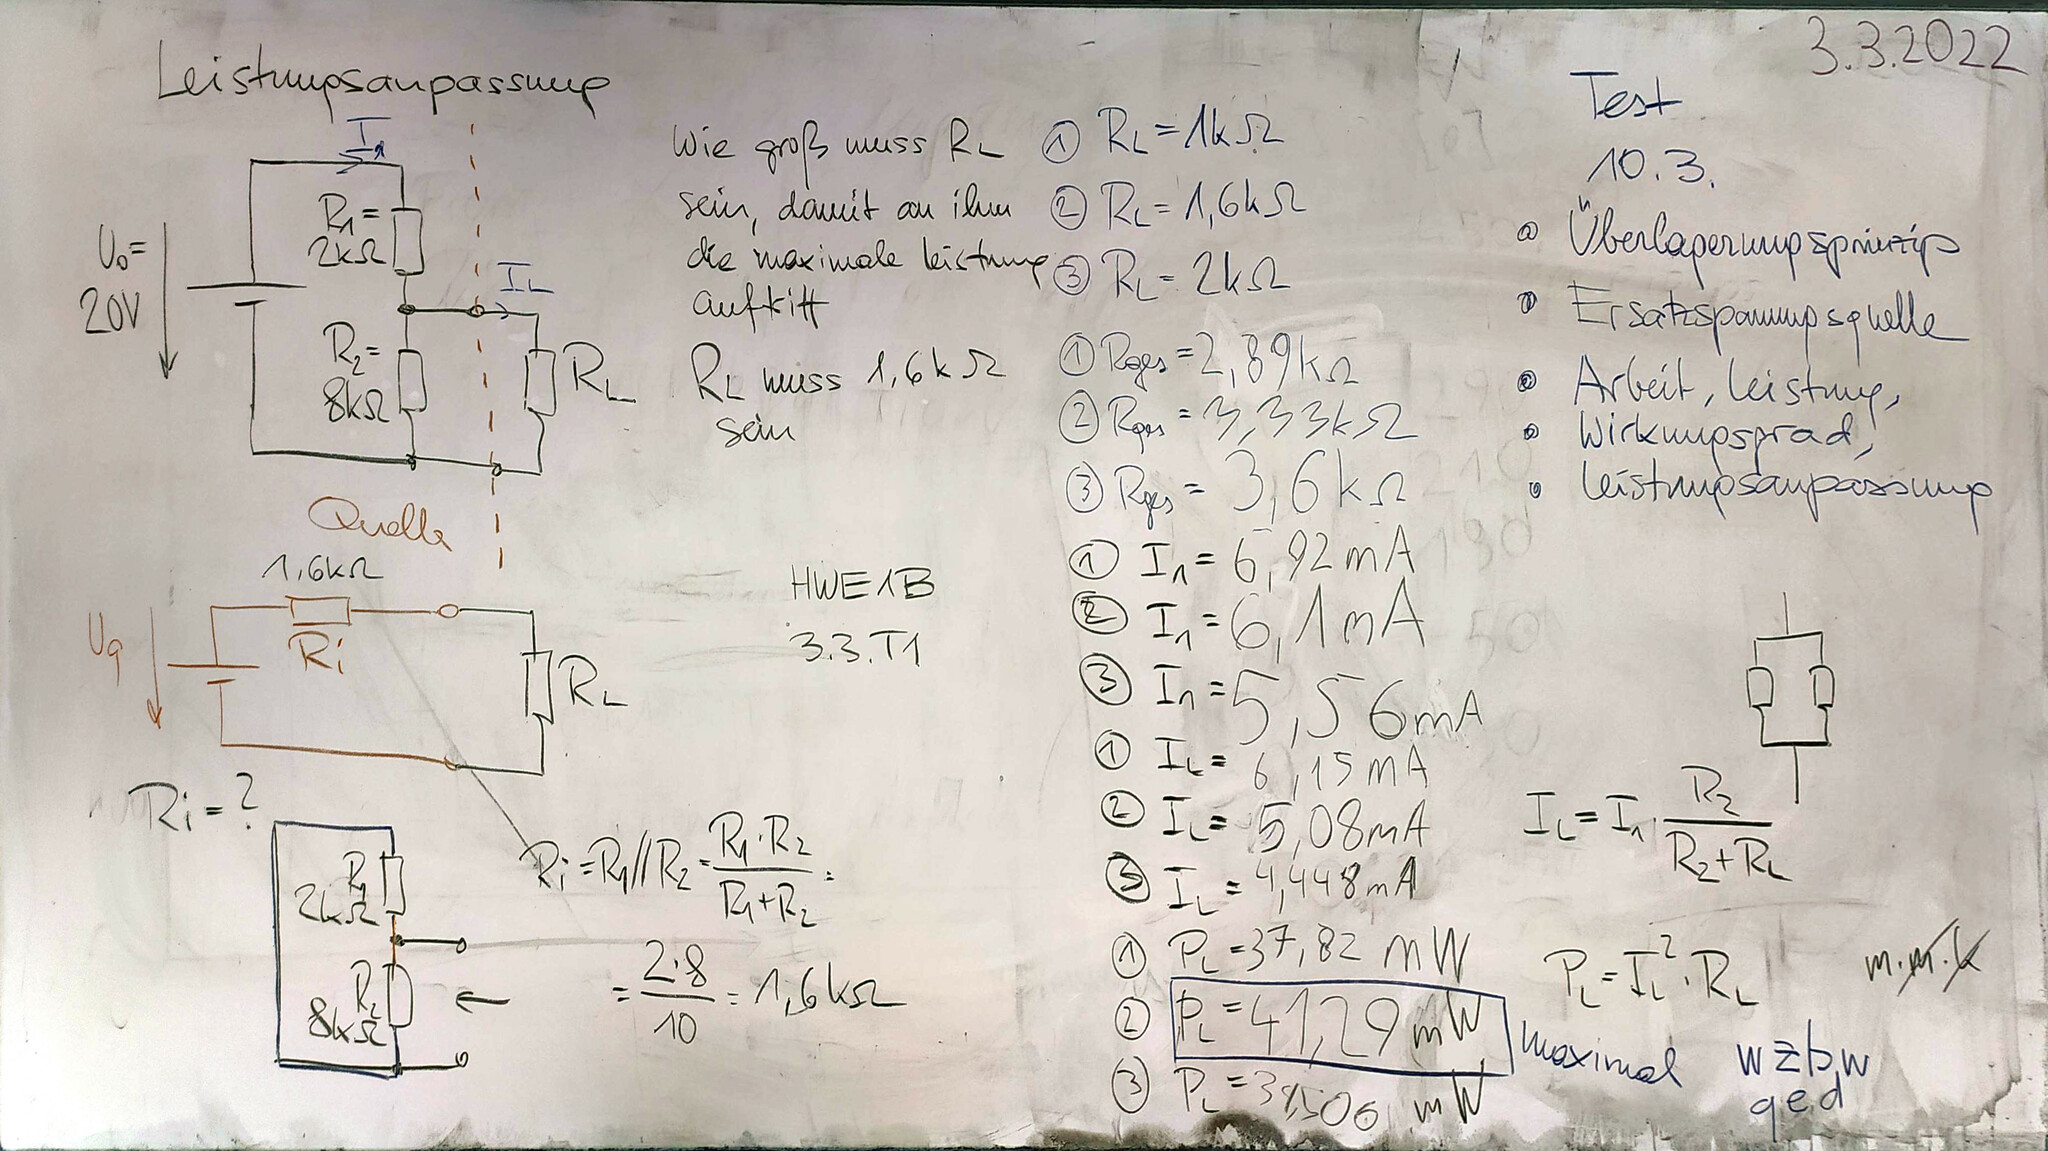 3.3.2022
Leistungsanpassung
I₁
R₁=
2kΩ
U₀=
20V
I_L
R₂=
8kΩ
R_L
Quelle
Wie groß muss R_L
sein, damit an ihm
die maximale Leistung
auftritt
R_L muss 1,6kΩ
sein
1,6kΩ
Uq
Ri
R_L
HWE1B
3.3.T1
Ri = ?
R₁
2kΩ
R₂
8kΩ
Ri = R₁//R₂ = R₁·R₂ / R₁+R₂ =
= 2·8 / 10 = 1,6kΩ
① R_L = 1kΩ
② R_L = 1,6kΩ
③ R_L = 2kΩ
① Rges = 2,89kΩ
② Rges = 3,33kΩ
③ Rges = 3,6kΩ
① I₁ = 6,92mA
② I₁ = 6,1mA
③ I₁ = 5,56mA
① I_L = 6,15mA
② I_L = 5,08mA
③ I_L = 4,448mA
① P_L = 37,82 mW
② P_L = 41,29 mW maximal
③ P_L = mW
Test
10.3.
Überlagerungsprinzip
Ersatzspannungsquelle
Arbeit, Leistung,
Wirkungsgrad,
Leistungsanpassung
I_L = I₁ · R₂ / R₂+R_L
P_L = I_L² · R_L
m.m.k
wzbw
qed